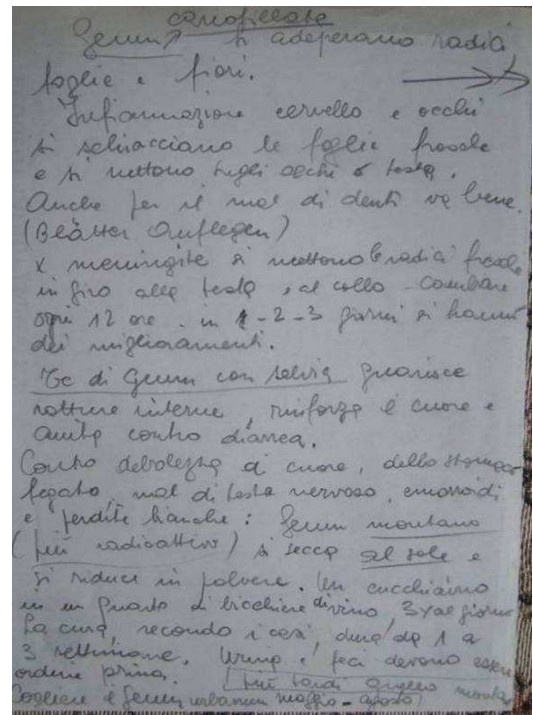 cariofillata
Geum si adoperano radici
foglie e fiori.
Infiammazione cervello e occhi
si schiacciano le foglie fresche
e si mettono sugli occhi o testa.
Anche per il mal di denti va bene.
(Blätter Auflegen)
x meningite si mettono le radici fresche
in giro alla testa, al collo - cambiare
ogni 12 ore. in 1-2-3 giorni si hanno
dei miglioramenti.
Tè di Geum con salvia guarisce
rotture interne, rinforza il cuore e
aiuta contro diarrea.
Contro debolezza di cuore, dello stomaco
fegato, mal di testa nervoso, emorroidi
e perdite bianche: Geum montano
(più radioattivo) si secca al sole e
si riduce in polvere. Un cucchiaino
in un quarto di bicchiere di vino 3x al giorno
La cura, secondo i casi dura da 1 a
3 settimane. Urina e feci devono essere
ordine prima. (più tardi montano
Cogliere il Geum urbanum maggio - agosto)